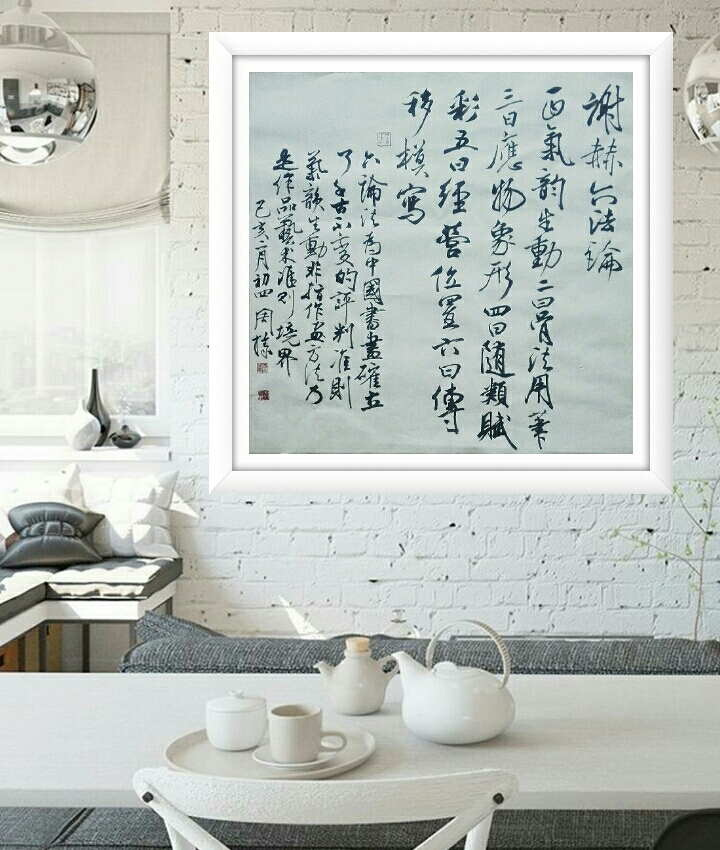 謝赫六法論
一曰氣韵生動二曰骨法用筆
三曰應物象形四曰随類賦
彩五曰经營位置六曰傳
移模寫
六論法為中國書畫確立
了千古不变的評判准則
氣韻生動非指作画方法乃
是作品藝术准则境界
己亥二月初四周